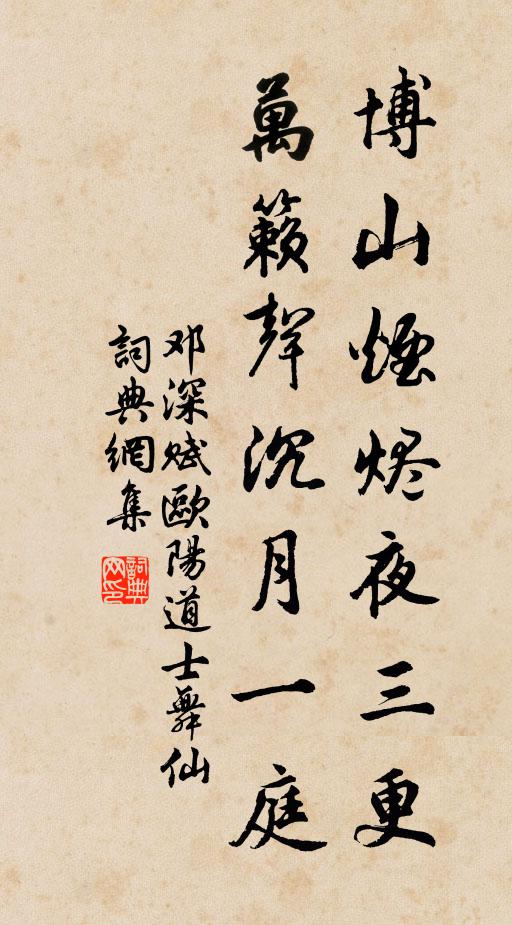 博山煙烬夜三更
萬籟聲沉月一庭
邓深赋歐陽道士舞仙
詞典網集
詞典网印